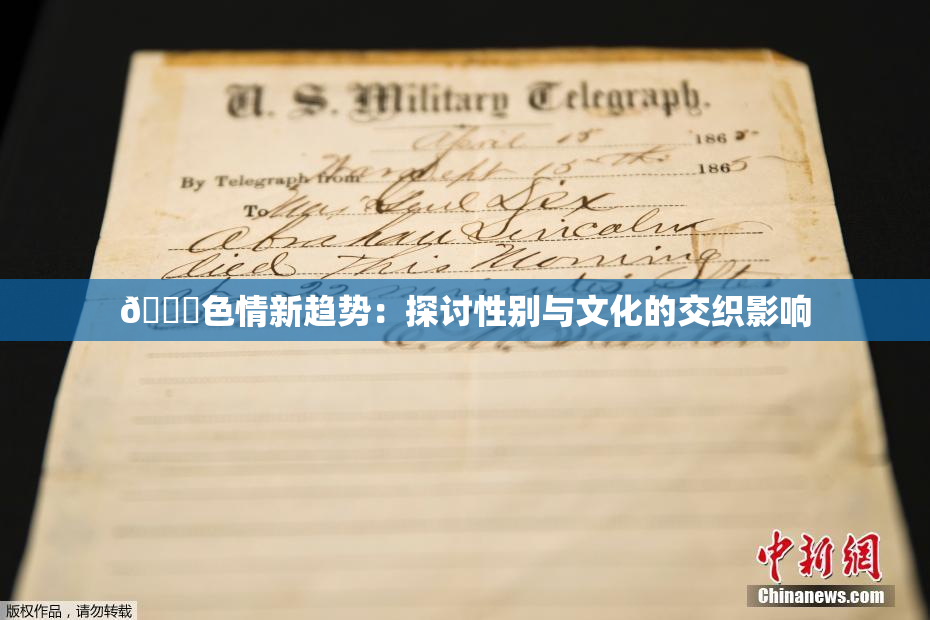 U. S. Military Telegraph.
April 15 1865
By Telegraph from War Dept 15th 1865
To Maj Genl Dix
Abraham Lincoln
died This Morning
22 minutes after
ð色情新趋势：探讨性别与文化的交织影响
E. M. Stanton
中新网
Chinanews.com
版权作品，请勿转载